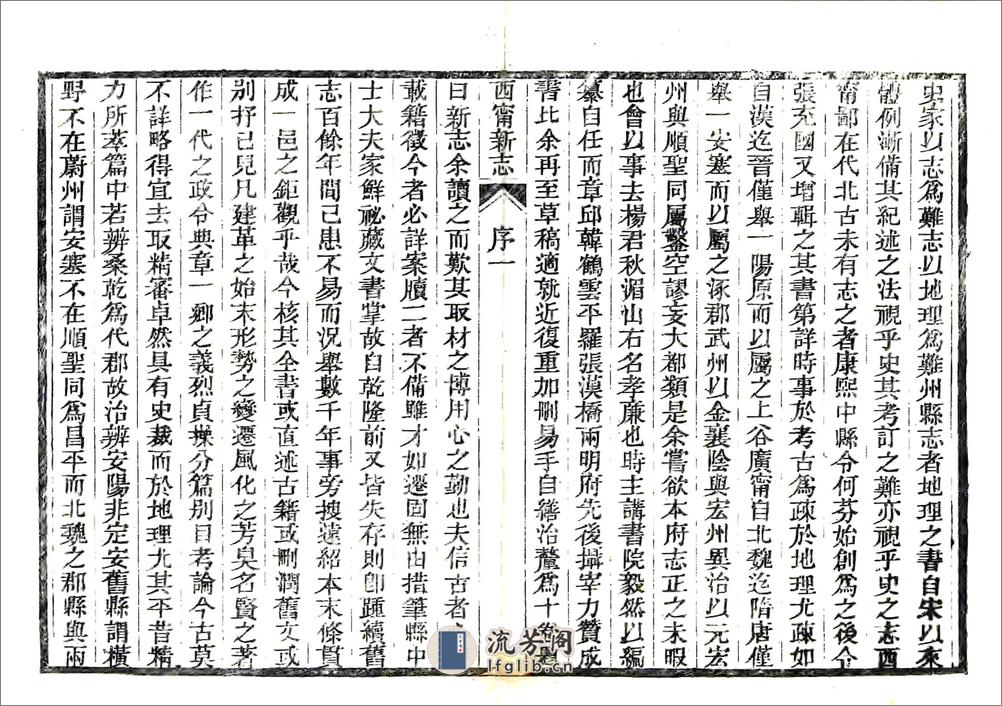 史家以志爲難志以地理爲難州縣志者地理之書自宋以來
體例漸備其紀述之法視乎史其考訂之難亦視乎史之志西
甯鄙在代北古未有志之者康熙中縣令何芬始創爲之後令
張充國又增輯之其書第詳時事於考古爲疎於地理尤疎如
自漢迄晉僅舉一陽原而以屬之上谷廣甯自北魏迄隋唐僅
舉一安塞而以屬之涿郡武州以金襄陰與宏州異治以元宏
州與順聖同屬鑿空謬妄大都類是余嘗欲本府志正之未暇
也會以事去楊君秋湄山右名孝廉也時主講書院毅然以編
纂自任而章邱韓鶴雲平羅張漠橋兩明府先後攝宰力贊成
書比余再至草稿適就近復重加刪易手自繕治釐爲十卷
西甯新志 序 一
曰新志余讀之而歎其取材之博用心之勤也夫信古者必
載籍徵今者必詳案牘二者不備雖才如遷固無由措筆縣中
士大夫家鮮祕藏文書掌故自乾隆前又皆失存則卽踵續舊
志百餘年間已患不易而況舉數千年事旁搜遠紹本末條貫
成一邑之鉅觀乎哉今核其全書或直述古籍或刪潤舊文或
别抒己見凡建革之始末形勢之變遷風化之芳臭名賢之著
作一代之政令典章一鄉之義烈貞操分篇别目考論今古莫
不詳略得宜去取精審卓然具有史裁而於地理尤其平昔精
力所萃篇中若辨桑乾爲代郡故治辨安陽非定安舊縣謂橫
野不在蔚州謂安塞不在順聖同爲昌平而北魏之郡縣與兩
流芳阁
lfglib.cn